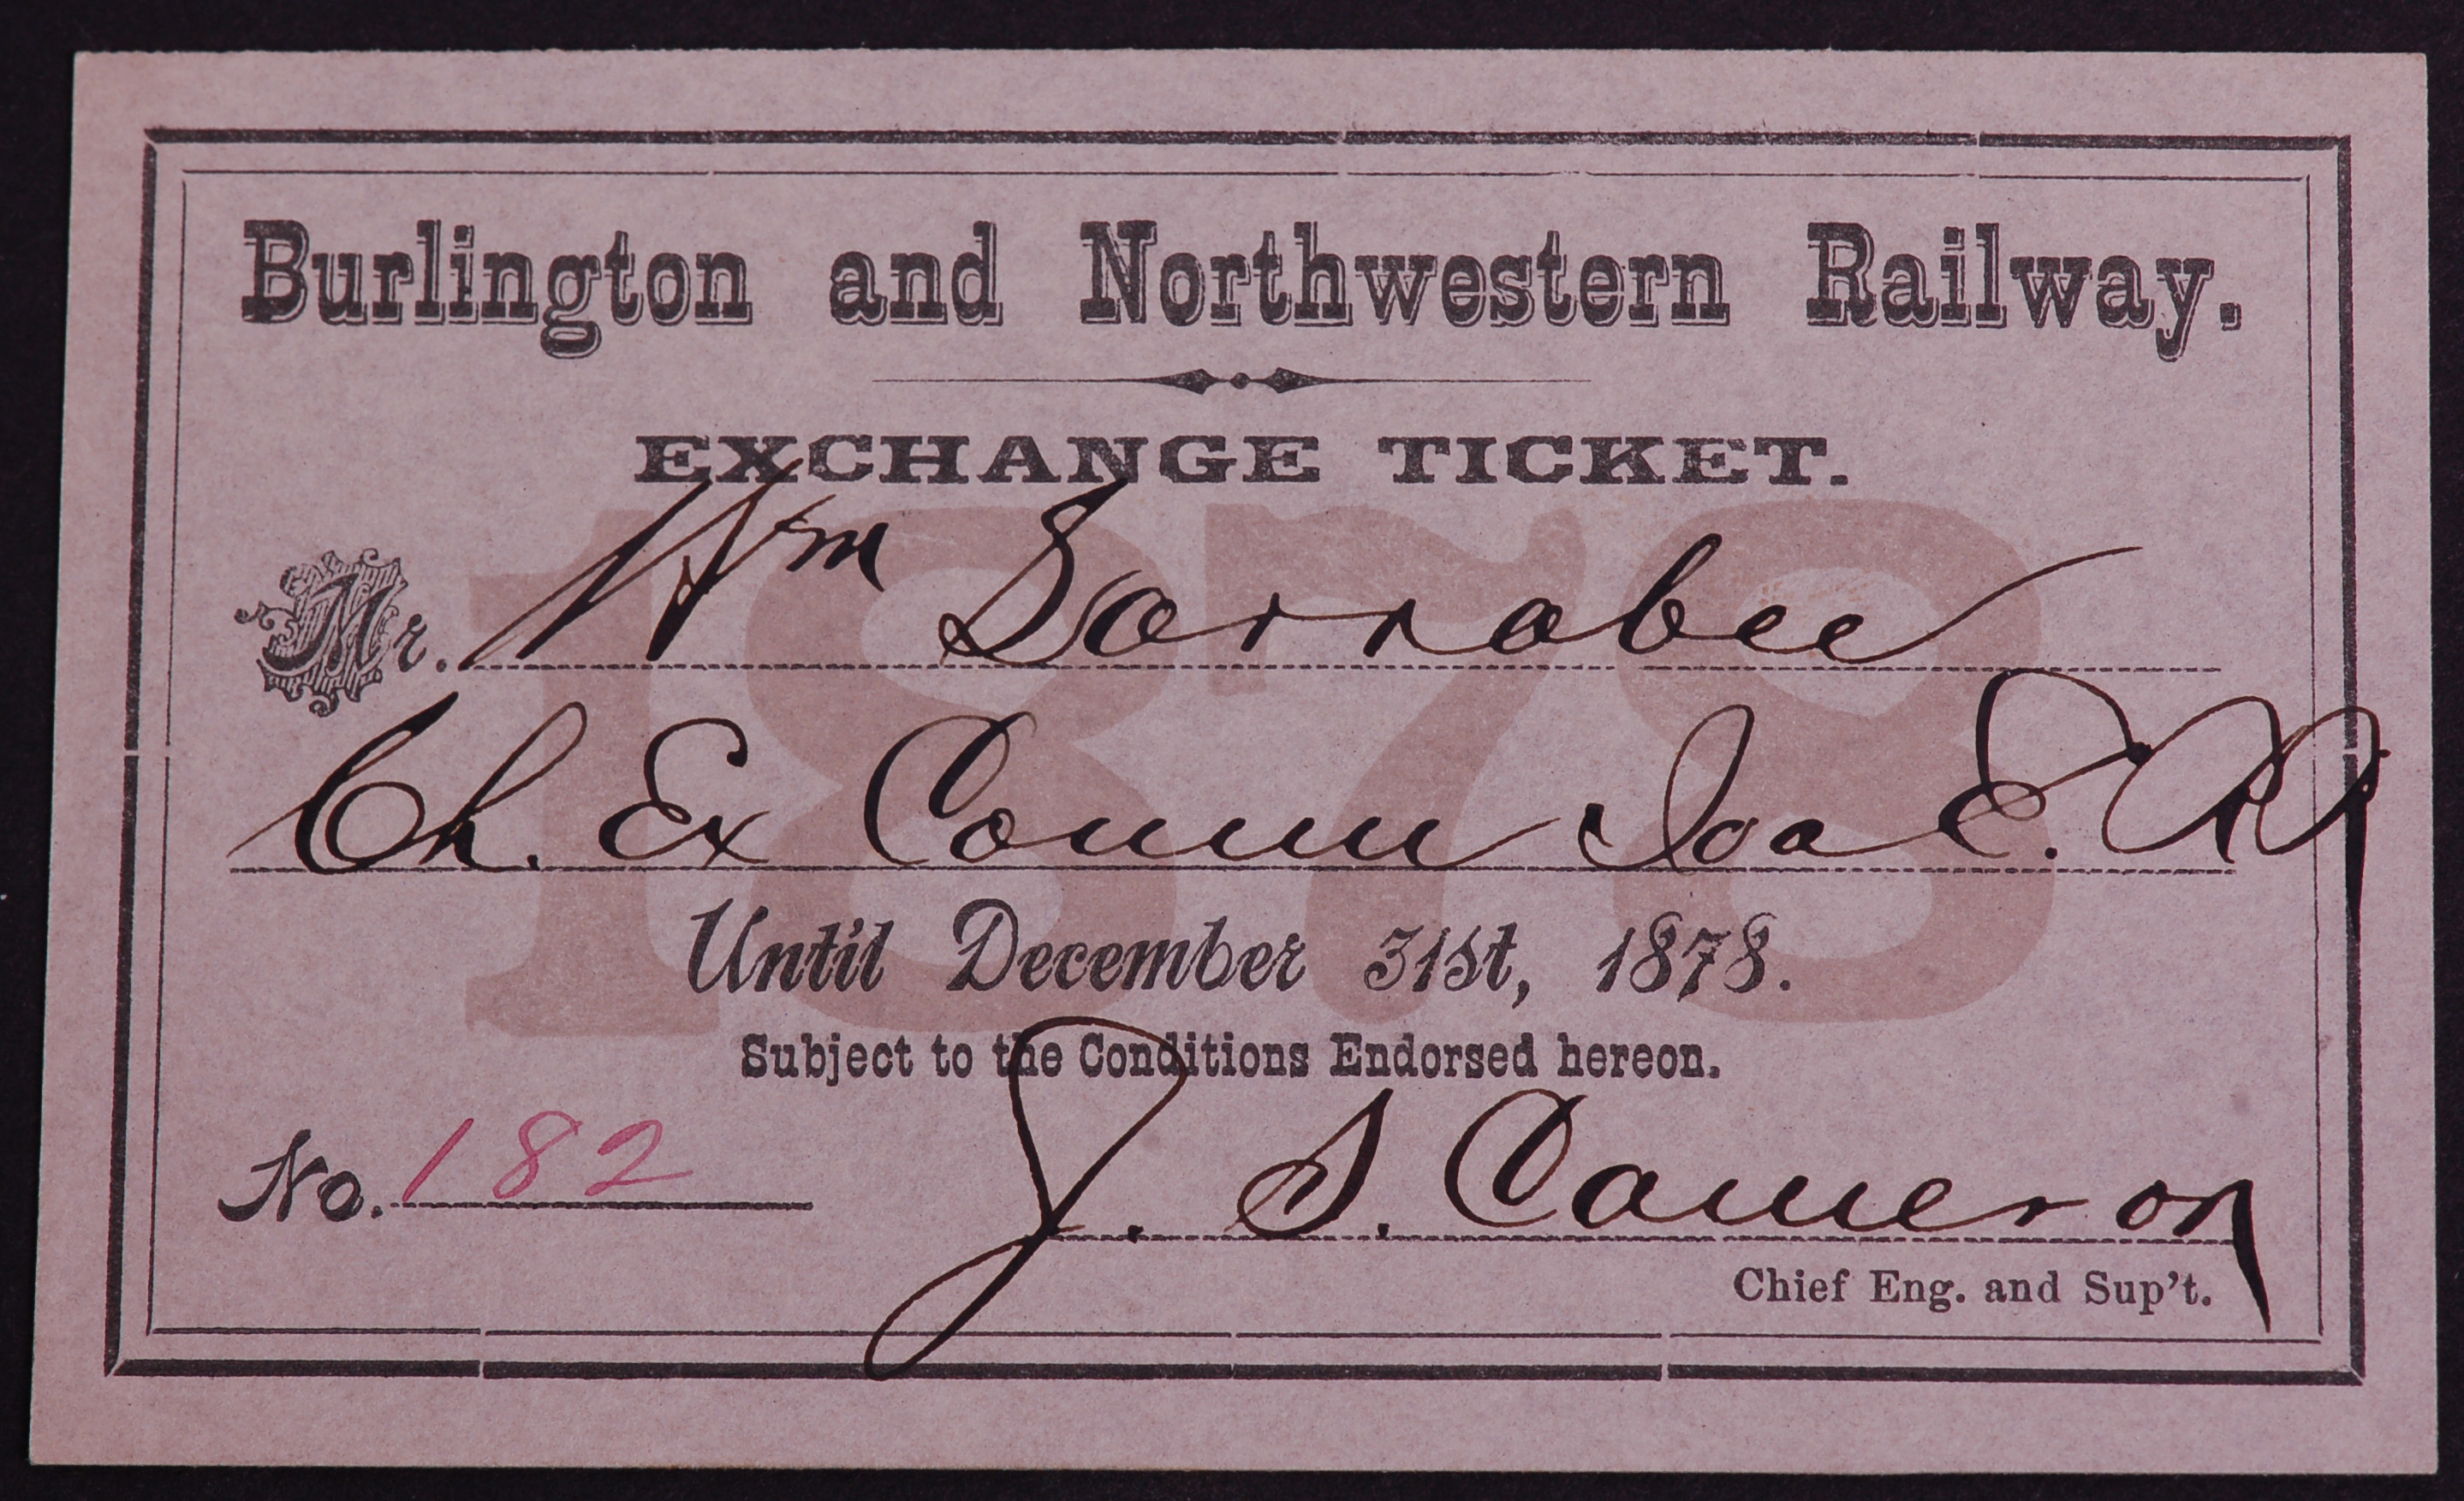 Burlington and Northwestern Railway.
EXCHANGE TICKET.
1878
Mr. Wm Larrabee
Ch. Ex Comm Ioa E. Ry
Until December 31st, 1878.
Subject to the Conditions Endorsed hereon.
No. 182
J. S. Cameron
Chief Eng. and Sup't.